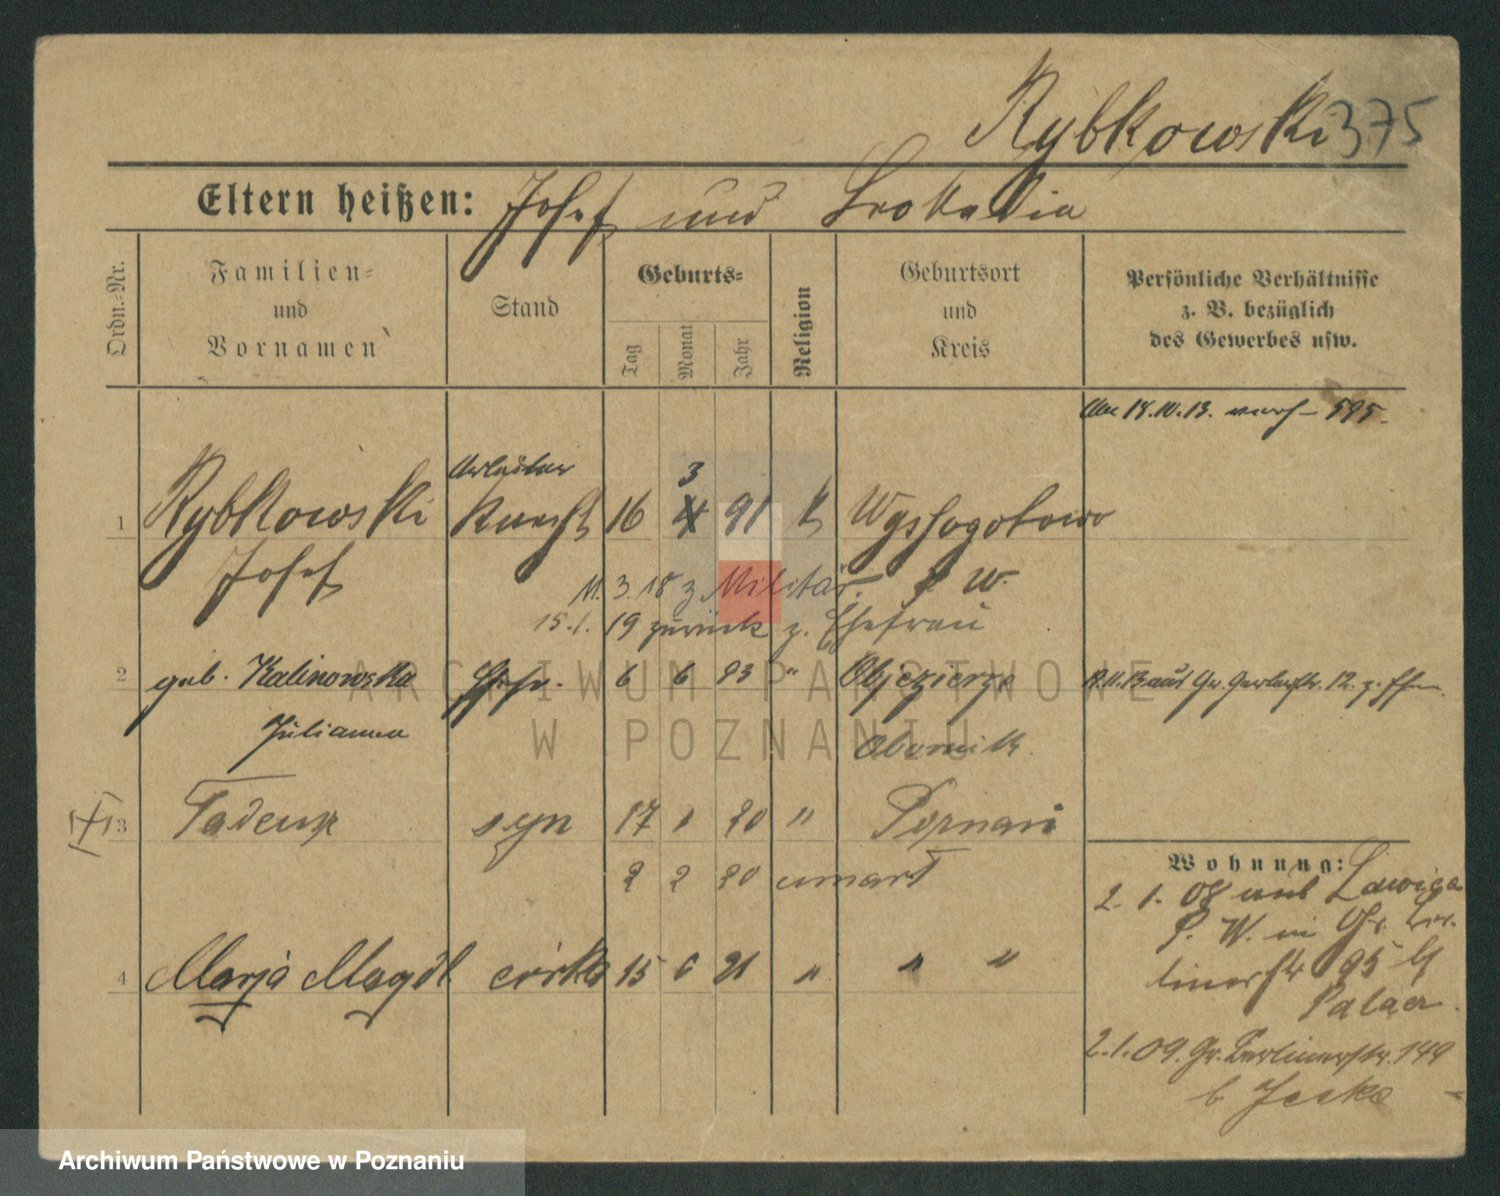 Rybkowski 375
Eltern heißen: Josef und Leokadia
Ordn.-Nr.
Familien-
und
Vornamen
Stand
Geburts-
Tag
Monat
Jahr
Religion
Geburtsort
und
Kreis
Persönliche Verhältnisse
z. B. bezüglich
des Gewerbes usw.
Arbeiter
3
1 Rybkowski Knecht 16 4 91 k Wyssogotowo
Josef
11. 3. 18 z Militär. P W.
15.1. 19 zurück z. Ehefrau
2 geb. Kalinowska Ehefr. 6 6 93 " Objezierze
Julianna Obornik
3 Tadeusz syn 17 1 20 " Poznań
2 2 20 umarł
4 Marja Magd córka 15 6 21 " " "
Wohnung:
2. 1. 08 aus Lawica
P. W. in Gr. Ber-
linerstr 95 b
2.1.09. Gr. Berlinerstr. 149
b
ARCHIWUM PAŃSTWOWE
W POZNANIU
Archiwum Państwowe w Poznaniu